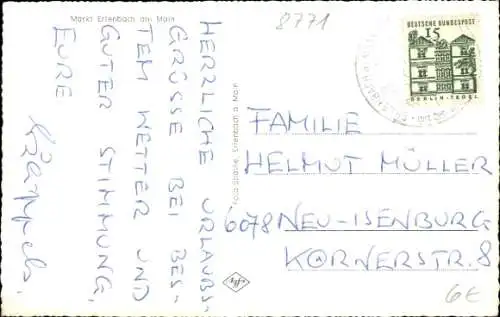 Markt Erlenbach am Main
8771
HERRLICHE URLAUBS-
GRÜSSE BEI BES-
TEM WETTER UND
GUTER STIMMUNG,
EURE
Erlenbach a. Main
DEUTSCHE BUNDESPOST
15
BERLIN-TEGEL
FAMILIE
HELMUT MÜLLER
6078 NEU-ISENBURG
KÖRNERSTR. 8
6€